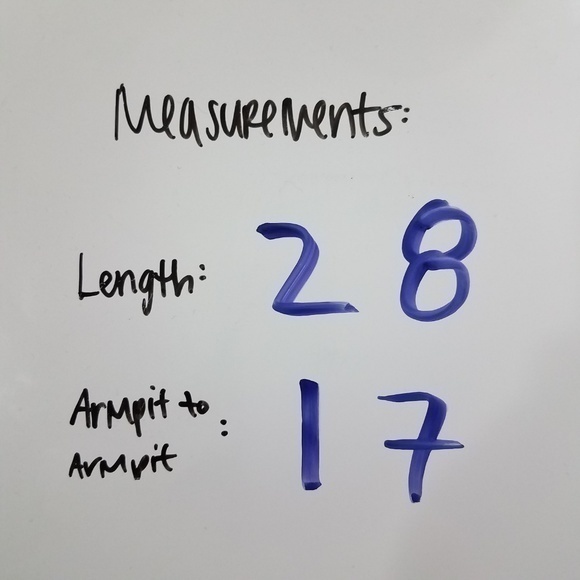 Measurements:
Length: 28
Armpit to
Armpit : 17